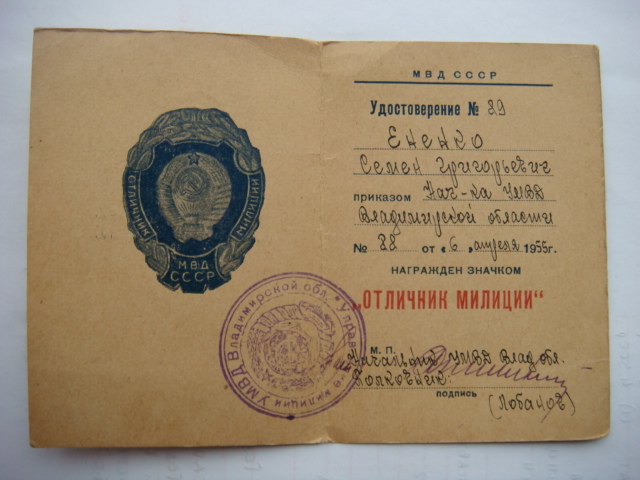 ОТЛИЧНИК МИЛИЦИИ
МВД
СССР
УМВД Владимирской обл. * Управление милиции
МВД СССР
Удостоверение № 29
Ененко
Семен Григорьевич
приказом Нач-ка УМВД
Владимирской области
№ 28 от «6» апреля 1955г.
НАГРАЖДЕН ЗНАЧКОМ
„ОТЛИЧНИК МИЛИЦИИ“
М. П.
Начальник УМВД Влад. обл.
Полковник
подпись
(Лобанов)